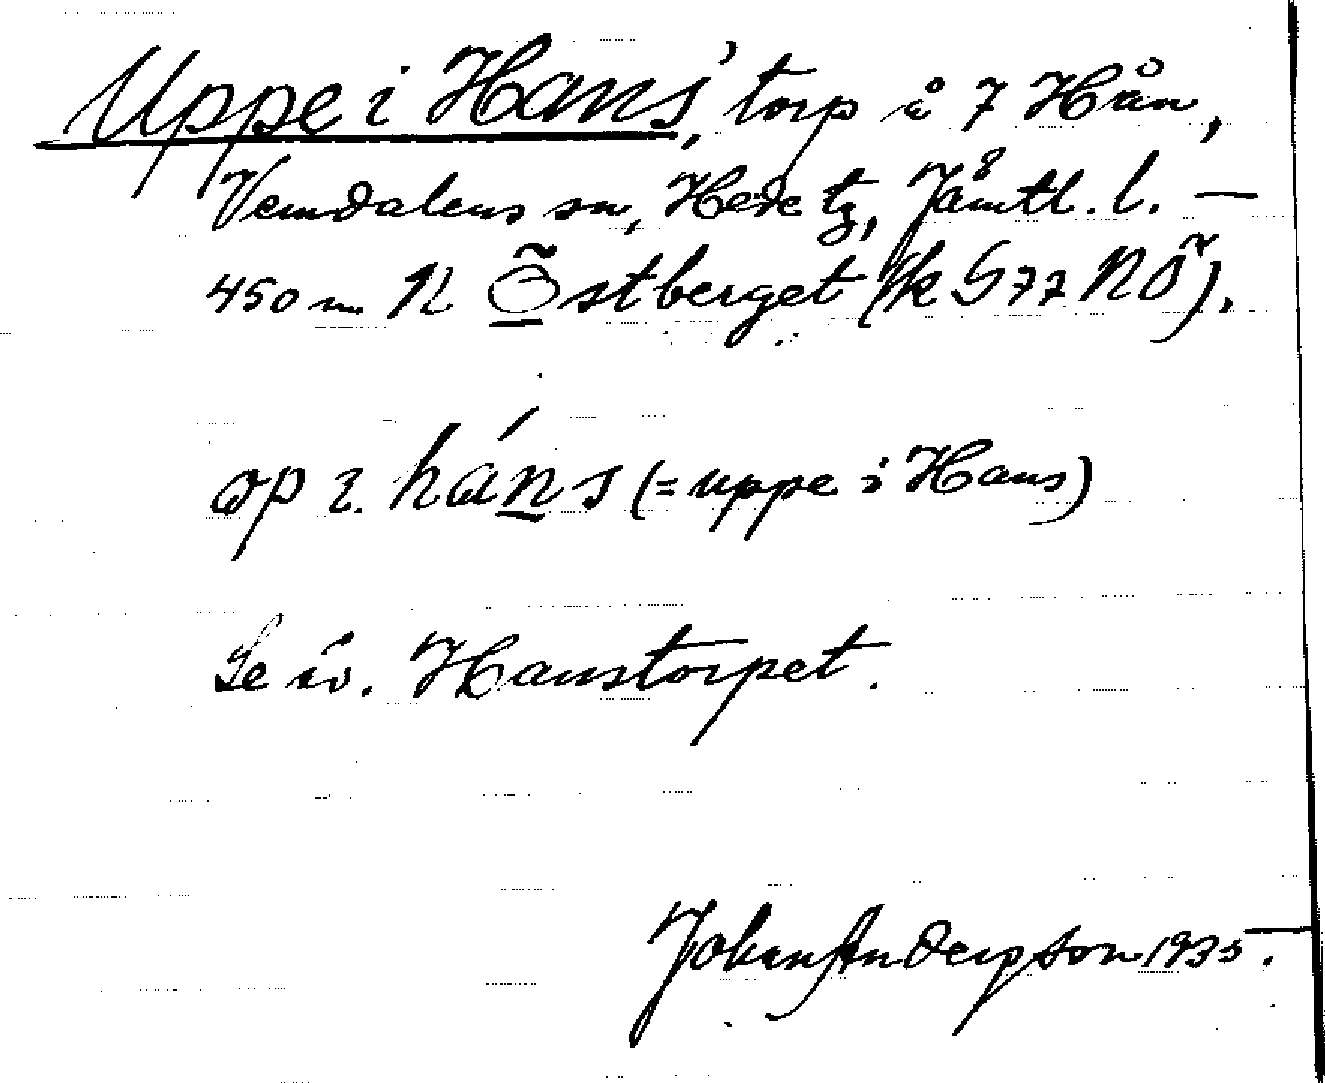 Uppe i Hans', torp å 7 Hån,
Vemdalens sn, Hede tg, Jämtl. l. —
450 m N Östberget (k G 77 NÖ).
op i háns (= uppe i Hans)
Se äv. Hanstorpet.
Johan Anderson 1935.